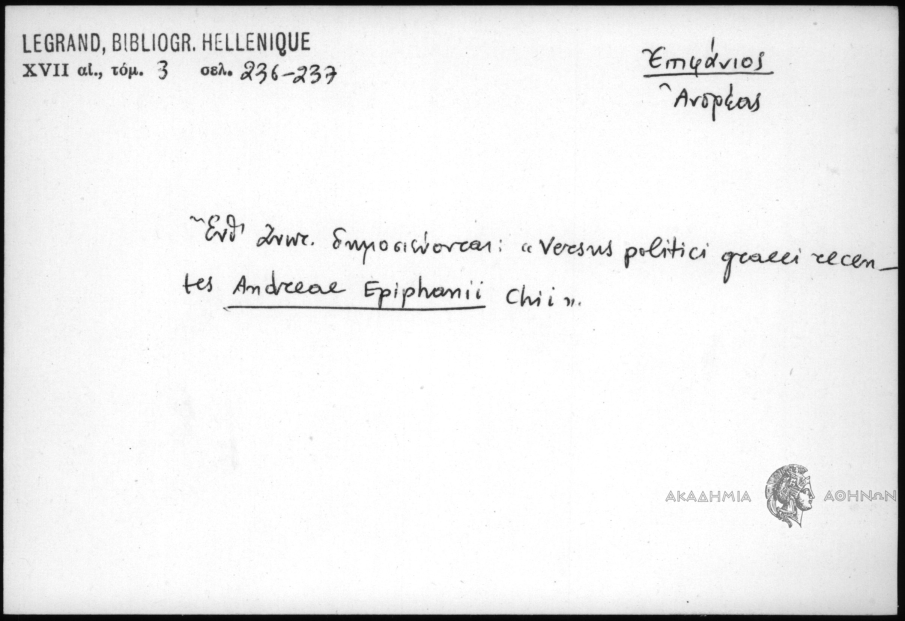 LEGRAND, BIBLIOGR. HELLENIQUE
XVII αἰ., τόμ. 3 σελ. 236-237
Ἐπιφάνιος
Ἀνδρέας
Ἔνθ' ἀνωτ. δημοσιεύονται: «Versus politici graeci recen-
tes Andreae Epiphanii Chii».
ΑΚΑΔΗΜΙΑ ΑΘΗΝΩΝ